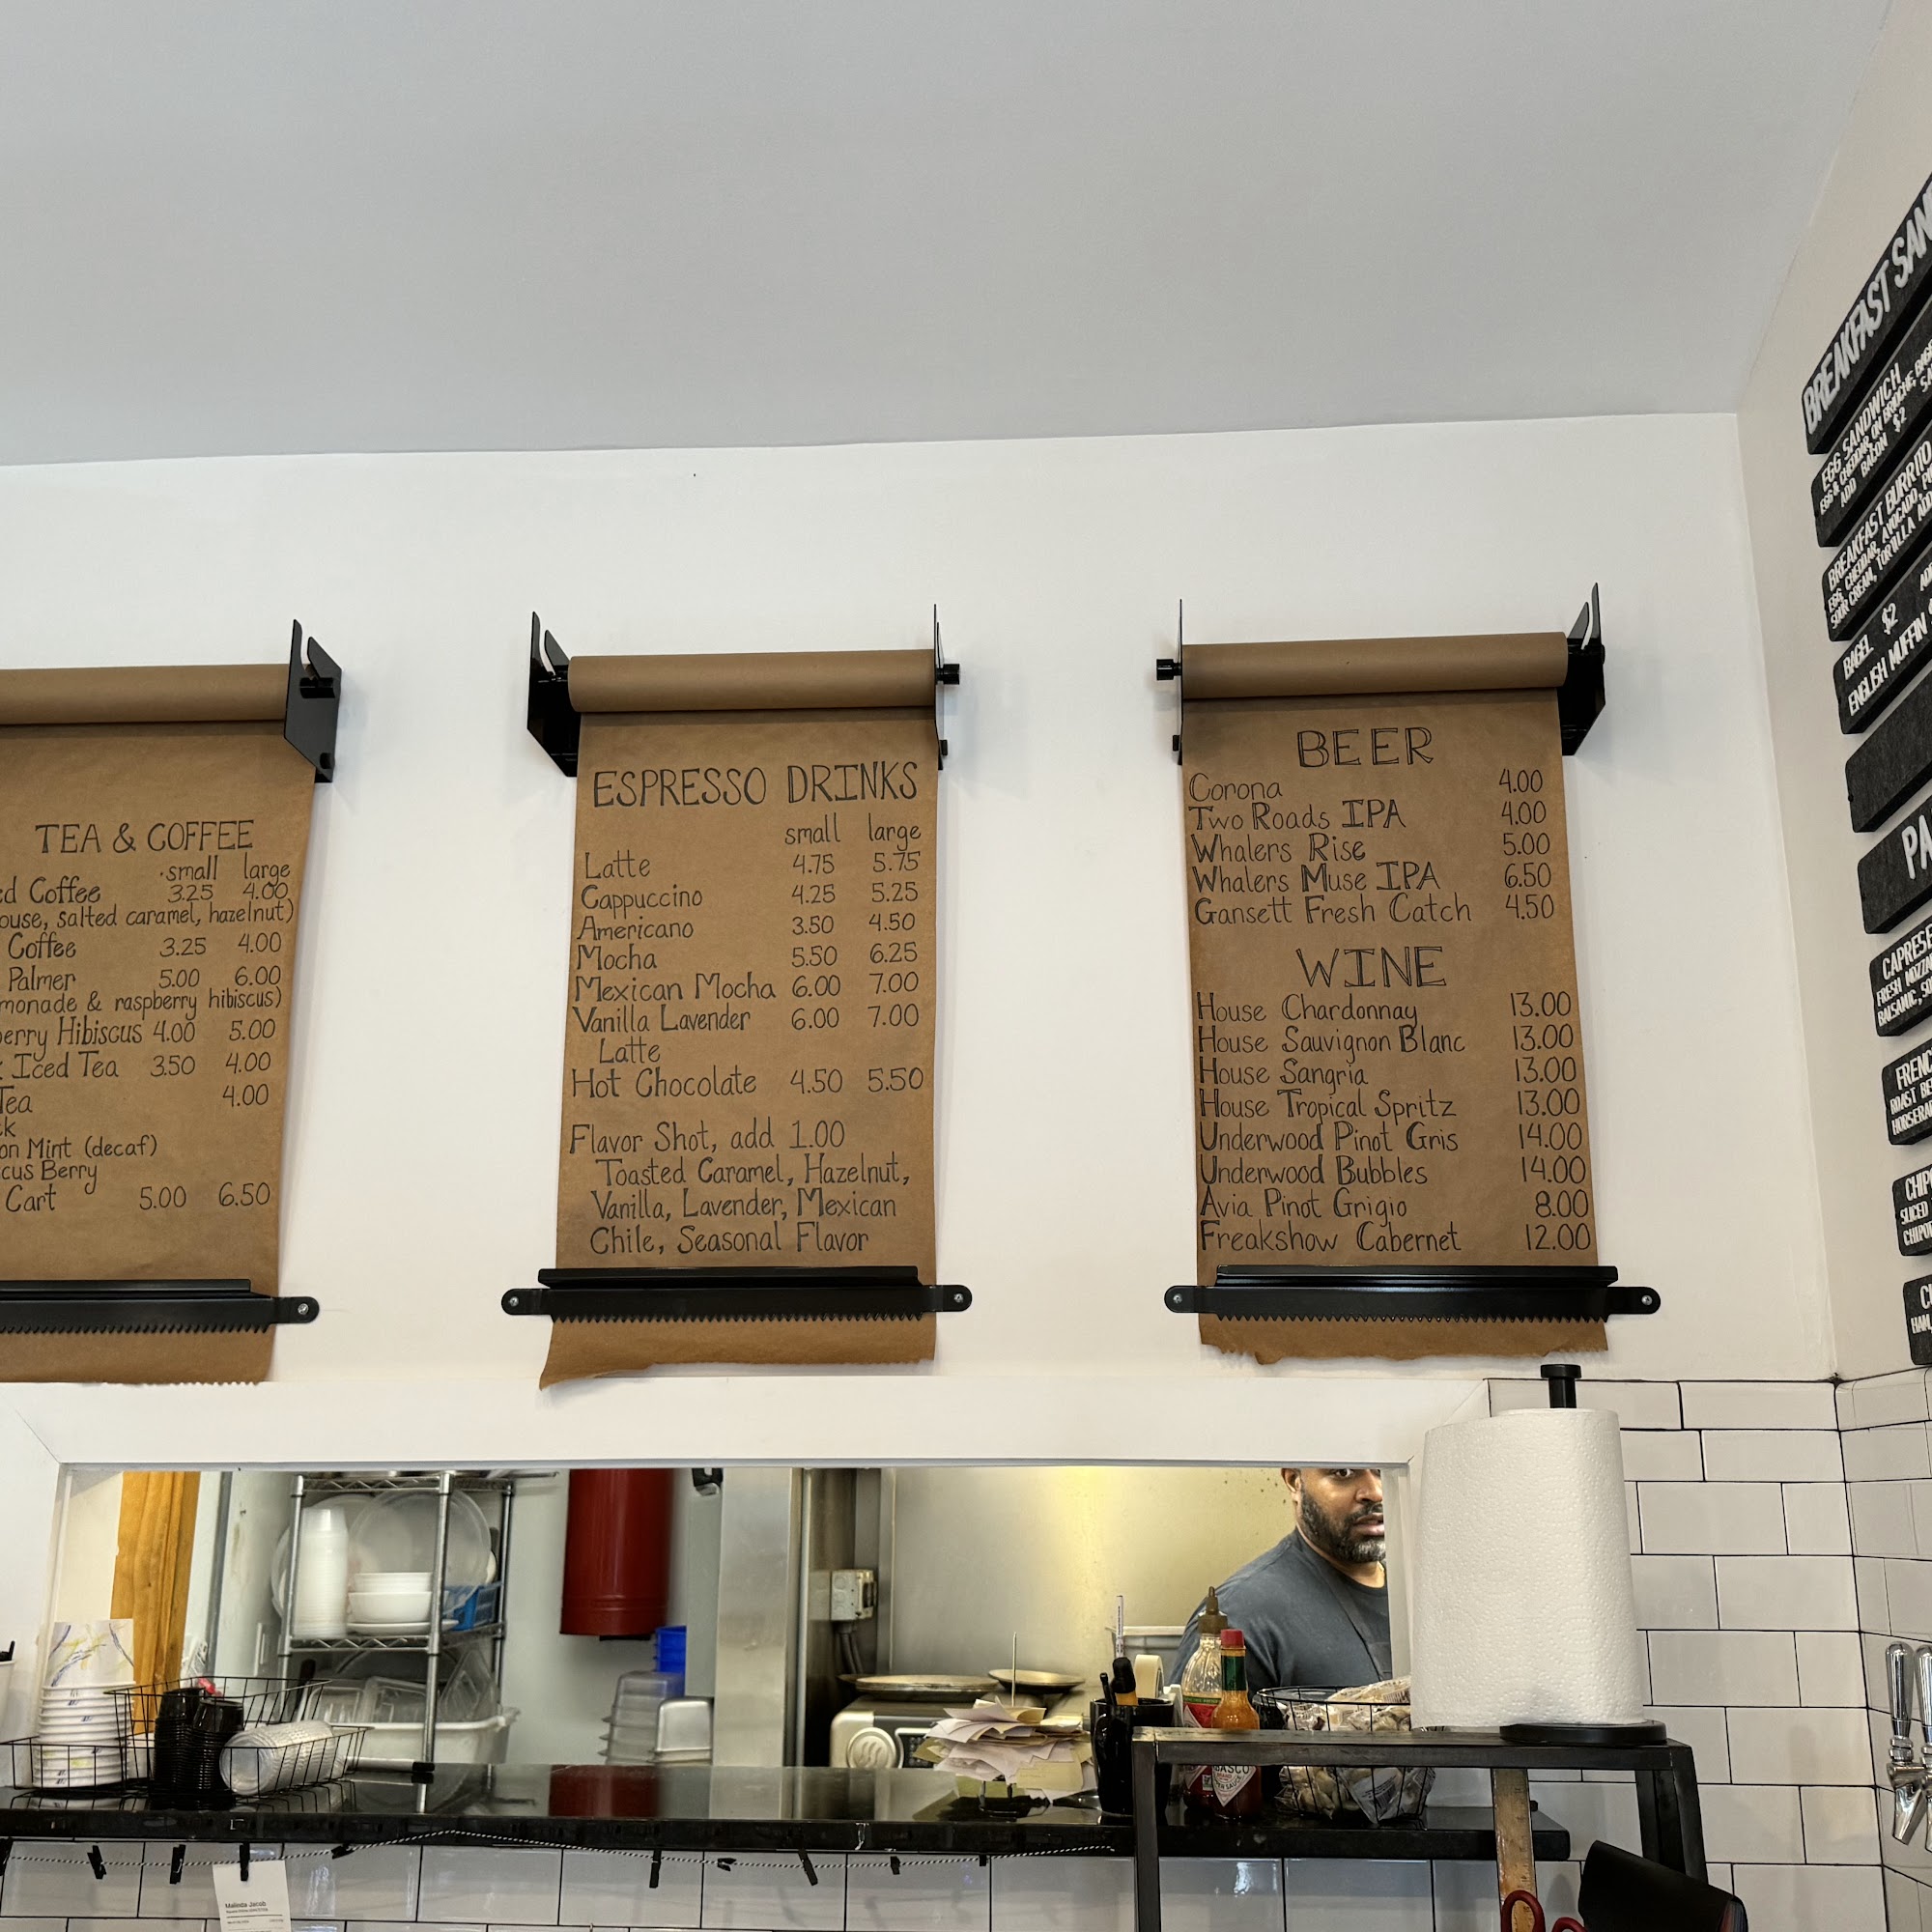 TEA & COFFEE
small large
Coffee 3.25 4.00
salted caramel, hazelnut)
Coffee 3.25 4.00
Palmer 5.00 6.00
& raspberry hibiscus)
Hibiscus 4.00 5.00
Iced Tea 3.50 4.00
Tea 4.00
Mint (decaf)
Berry
Cart 5.00 6.50
ESPRESSO DRINKS
small large
Latte 4.75 5.75
Cappuccino 4.25 5.25
Americano 3.50 4.50
Mocha 5.50 6.25
Mexican Mocha 6.00 7.00
Vanilla Lavender 6.00 7.00
Latte
Hot Chocolate 4.50 5.50
Flavor Shot, add 1.00
Toasted Caramel, Hazelnut,
Vanilla, Lavender, Mexican
Chile, Seasonal Flavor
BEER
Corona 4.00
Two Roads IPA 4.00
Whalers Rise 5.00
Whalers Muse IPA 6.50
Gansett Fresh Catch 4.50
WINE
House Chardonnay 13.00
House Sauvignon Blanc 13.00
House Sangria 13.00
House Tropical Spritz 13.00
Underwood Pinot Gris 14.00
Underwood Bubbles 14.00
Avia Pinot Grigio 8.00
Freakshow Cabernet 12.00
BREAKFAST
EGG SANDWICH
EGG & CHEDDAR ON BRIOCHE,
ADD BACON $2
BREAKFAST BURRITO
EGG, CHEDDAR, AVOCADO,
SOUR CREAM, TORTILLA
BAGEL $2
ENGLISH MUFFIN
CAPRESE
FRESH
BALSAMIC,
ROAST
SLICED
HAM,
TABASCO
Malinda Jacob